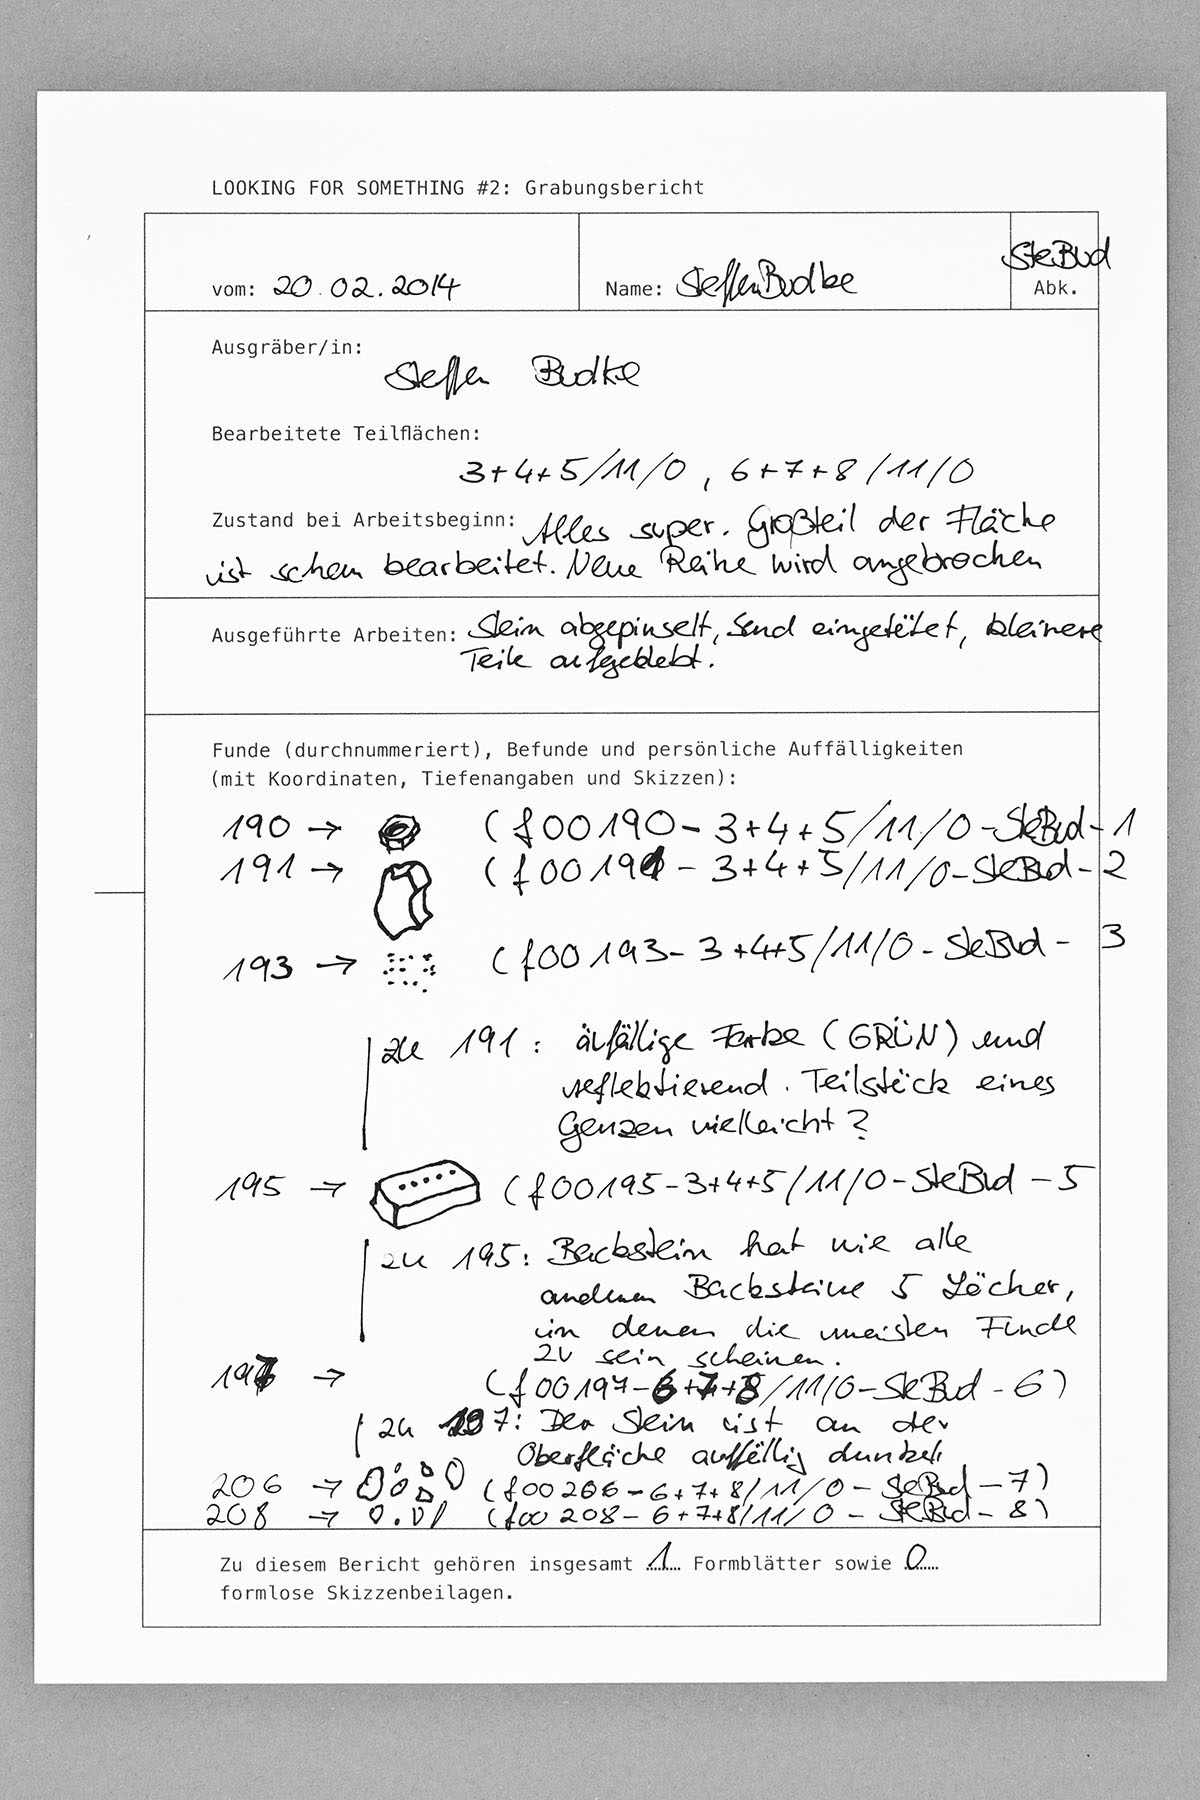 LOOKING FOR SOMETHING #2: Grabungsbericht
vom: 20.02.2014
Name: Steffen Budke
SteBud
Abk.
Ausgräber/in:
Steffen Budke
Bearbeitete Teilflächen:
3+4+5/11/0, 6+7+8/11/0
Zustand bei Arbeitsbeginn: Alles super. Großteil der Fläche
ist schon bearbeitet. Neue Reihe wird angebrochen
Ausgeführte Arbeiten: Stein abgepinselt, Sand eingetütet, kleinere
Teile aufgeklebt.
Funde (durchnummeriert), Befunde und persönliche Auffälligkeiten
(mit Koordinaten, Tiefenangaben und Skizzen):
190 → (f00190-3+4+5/11/0-SteBud-1
191 → (f00191-3+4+5/11/0-SteBud-2
193 → (f00193-3+4+5/11/0-SteBud-3
zu 191: Farbe (GRÜN) und
reflektierend. Teilstück eines
Ganzen vielleicht?
195 → (f00195-3+4+5/11/0-SteBud-5
zu 195: Backstein hat wie alle
anderen Backsteine 5 Löcher,
in denen die meisten Funde
zu sein scheinen.
197 → (f00197-6+7+8/11/0-SteBud-6)
zu 197: Der Stein ist an der
Oberfläche auffällig dunkel.
206 → (f00206-6+7+8/11/0-SteBud-7)
208 → (f00208-6+7+8/11/0-SteBud-8)
Zu diesem Bericht gehören insgesamt 1 Formblätter sowie 0
formlose Skizzenbeilagen.